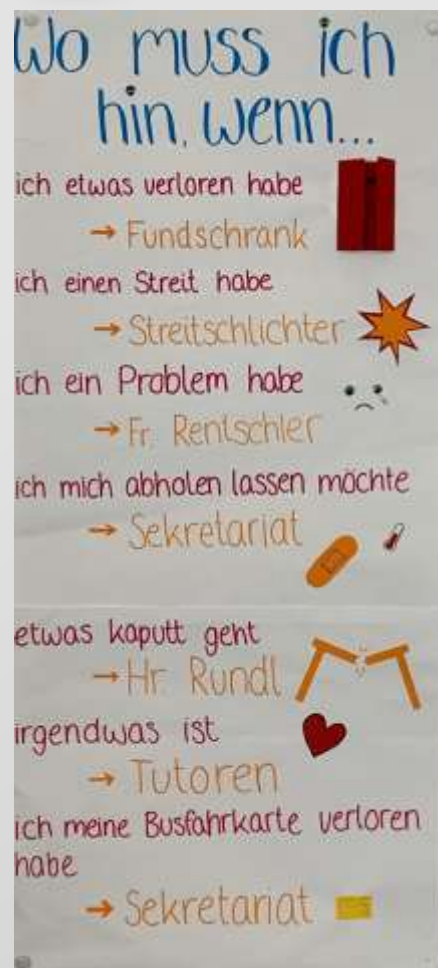 Wo muss ich
hin, wenn...
ich etwas verloren habe
→ Fundschrank
ich einen Streit habe
→ Streitschlichter
ich ein Problem habe
→ Fr. Rentschler
ich mich abholen lassen möchte
→ Sekretariat
etwas kaputt geht
→ Hr. Rundl
irgendwas ist
→ Tutoren
ich meine Busfahrkarte verloren
habe
→ Sekretariat